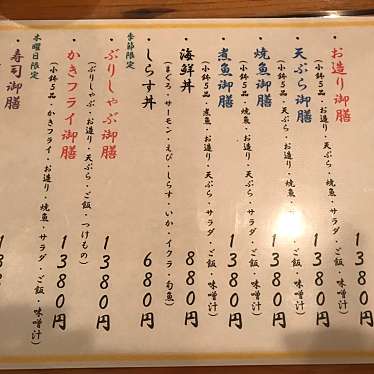 ・お造り御膳
(小鉢5品・お造り・天ぷら・焼魚・サラダ・ご飯・味噌汁)
1380円
・天ぷら御膳
(小鉢5品・天ぷら・お造り・焼魚・サラダ・ご飯・味噌汁)
1380円
・焼魚御膳
(小鉢5品・焼魚・お造り・天ぷら・サラダ・ご飯・味噌汁)
1380円
・煮魚御膳
(小鉢5品・煮魚・お造り・天ぷら・サラダ・ご飯・味噌汁)
1380円
・海鮮丼
(まぐろ・サーモン・えび・しらす・いか・イクラ・旬魚)
880円
・しらす丼
680円
季節限定
・ぶりしゃぶ御膳
(ぶりしゃぶ・お造り・天ぷら・ご飯・つけもの)
1380円
・かきフライ御膳
(小鉢5品・かきフライ・お造り・焼魚・サラダ・ご飯・味噌汁)
1380円
木曜日限定
・寿司御膳
138